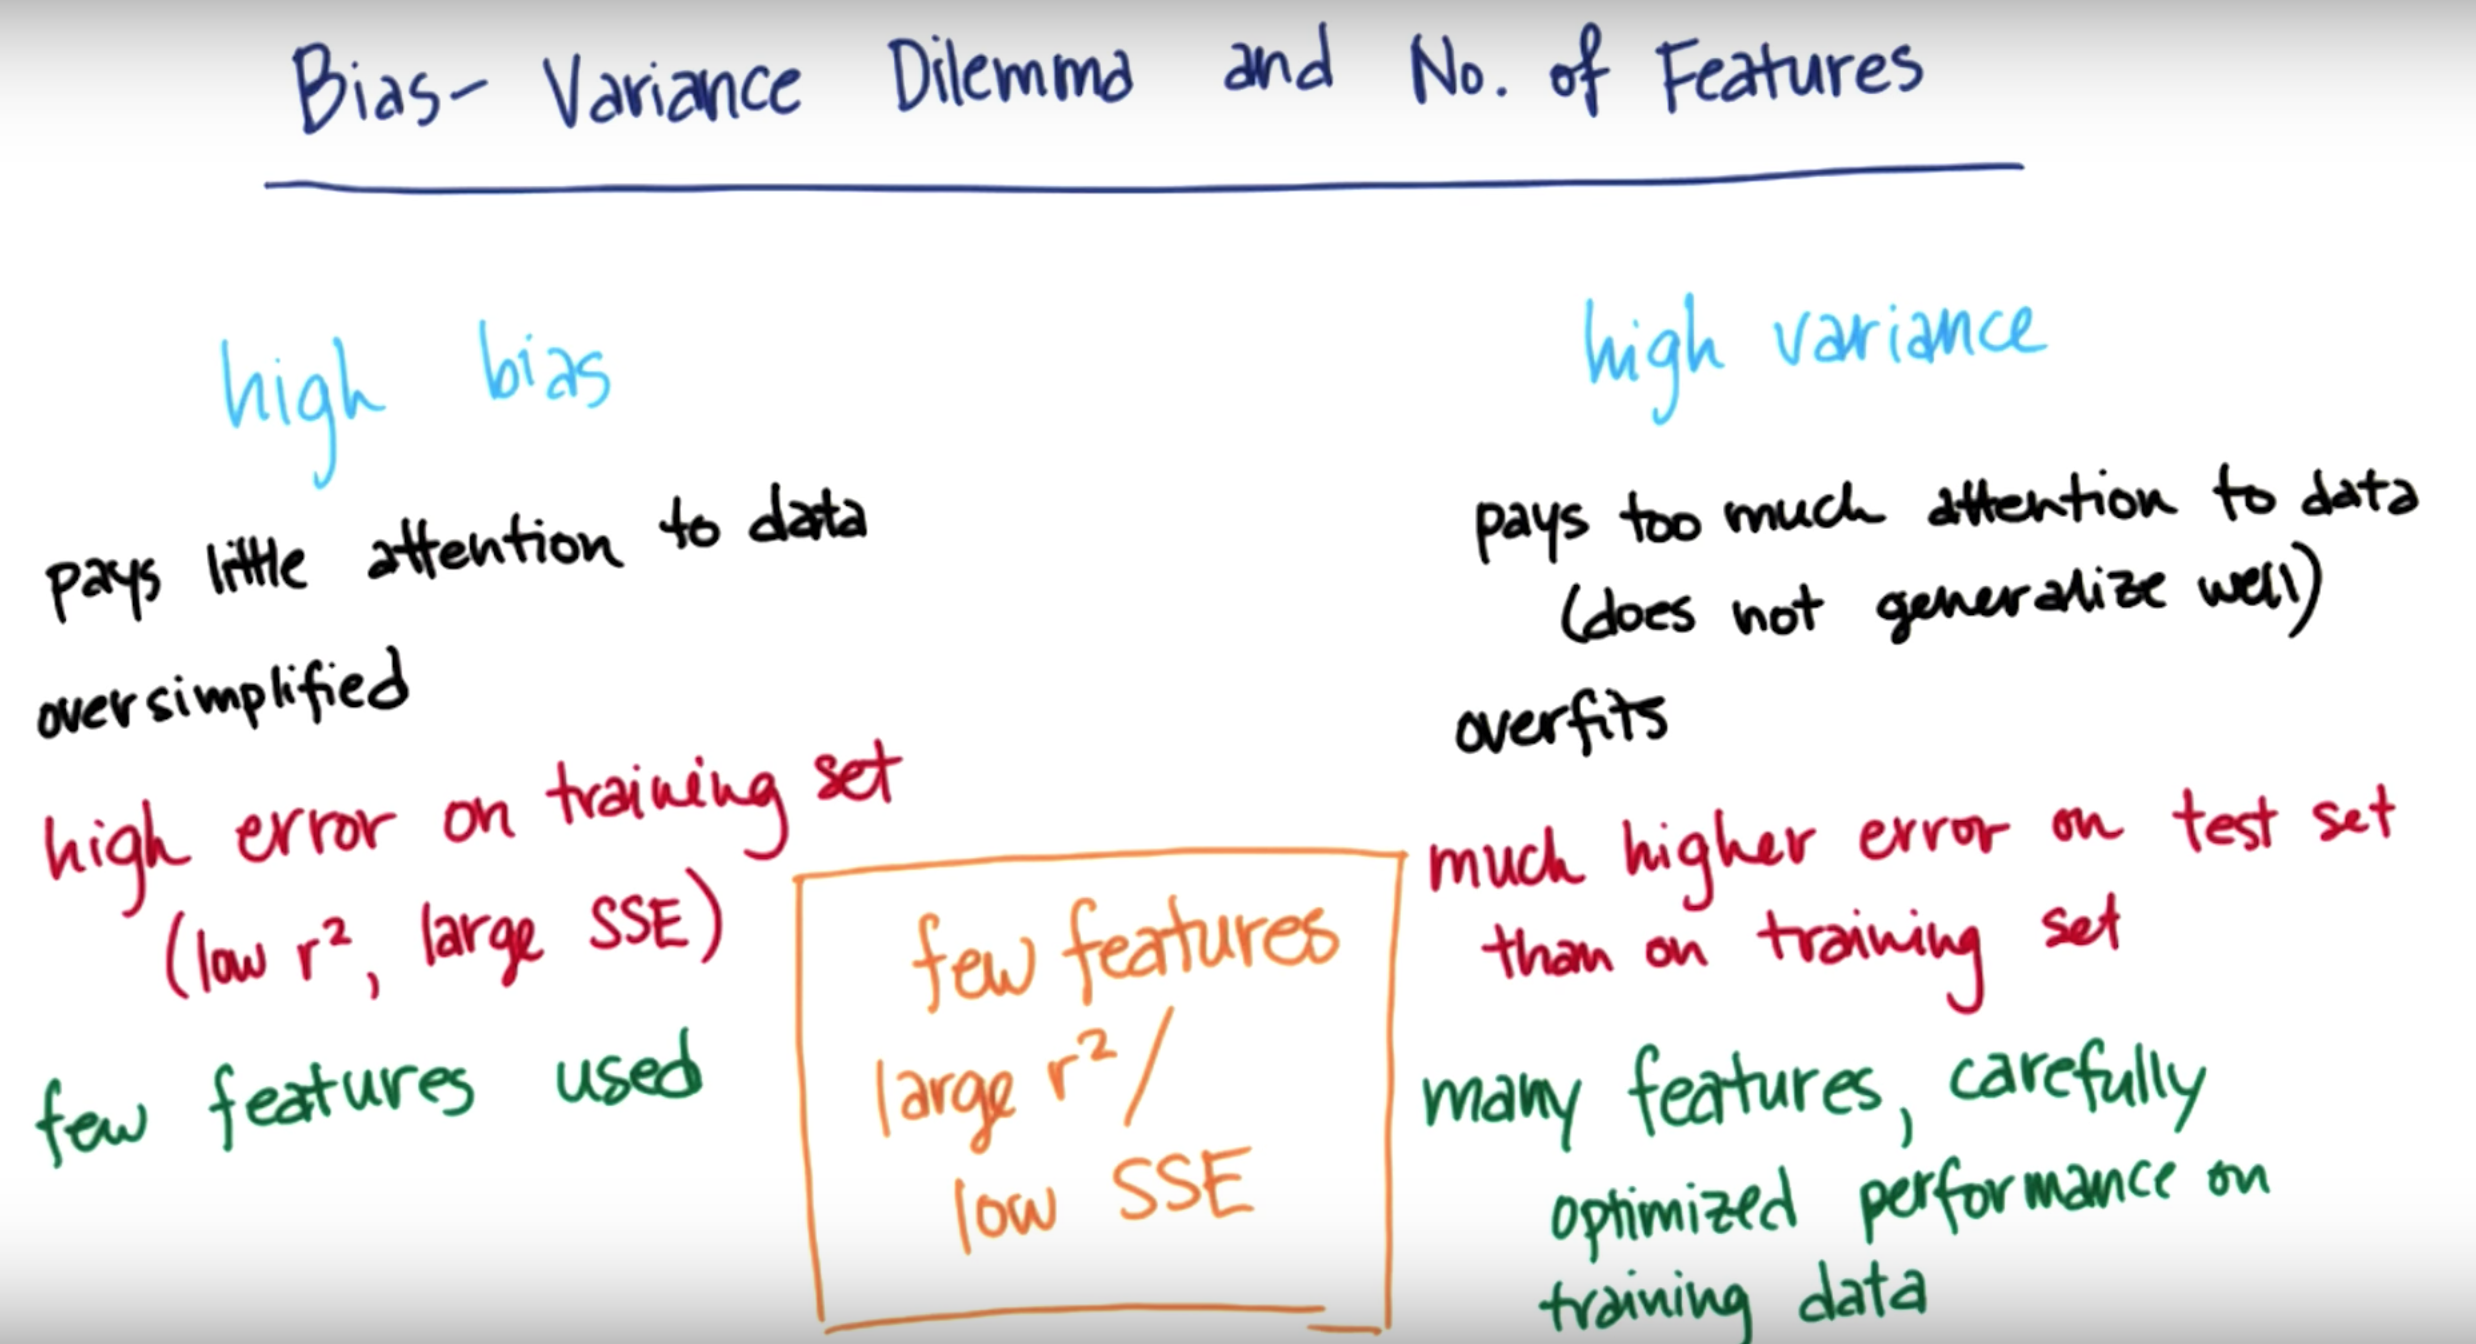 Bias- Variance Dilemma and No. of Features
high bias
pays little attention to data
oversimplified
high error on training set
(low r², large SSE)
few features used
few features
large r² /
low SSE
high variance
pays too much attention to data
(does not generalize well)
overfits
much higher error on test set
than on training set
many features, carefully
optimized performance on
training data